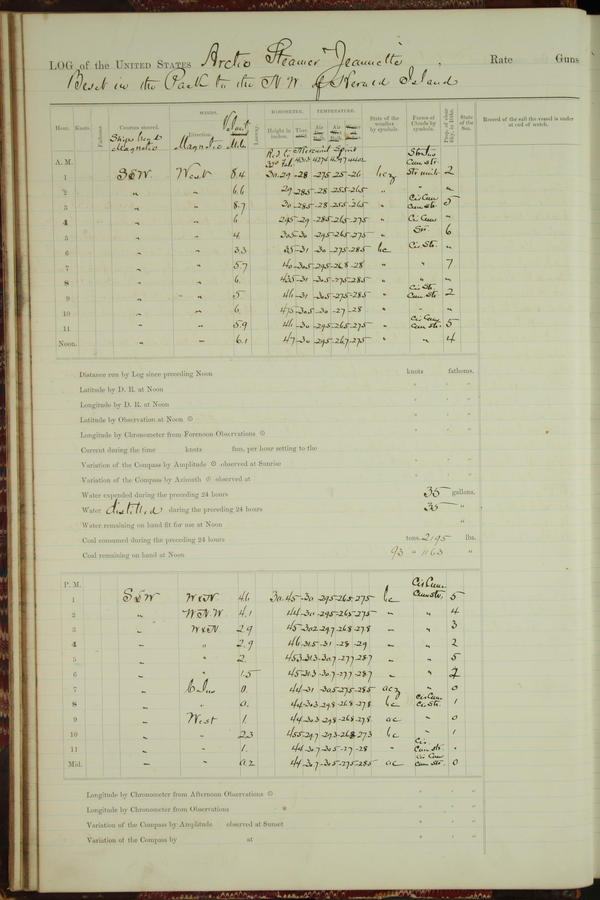 LOG of the UNITED STATES Arctic Steamer "Jeannette" Rate Guns
Beset in the Pack to the N.W. of Herald Island
Hour. Knots. Fathoms. Courses steered. WINDS. Leeway. BAROMETER. TEMPERATURE. State of the weather by symbols. Forms of Clouds by symbols. Prop. of clear sky, in 10ths. State of the Sea. Record of the sail the vessel is under at end of watch.
Ship's head Magnetic Direction. Magnetic Height in inches. Ther.
A. M.
1 S&W West 8.4 30.29 -28 -275 -25 -26 bcz 2
2 " " 6.6 29 -285 -28 -255 -265 " " "
3 " " 8.7 30 -285 -28 -255 -265 " Cir Cum Cum str. 5
4 " " 6 295 -29 -285 -265 -275 " Cir Cum "
5 " " 4 305 -30 -295 -265 -275 " 6
6 " " 3.3 35 -31 -30 -275 -285 bc Cir Str. "
7 " " 5.7 40 -305 -295 -268 -28 " " 7
8 " " 6. 435 -31 -305 -275 -285 " " "
9 " " 5 46 -31 -305 -275 -285 " Cir Str. Cum Str. 2
10 " " 6. 475 -305 -30 -27 -28 " "
11 " " 5.9 46 -30 -295 -265 -275 " Cir Cum Cum str. 5
Noon. " " 6.1 47 -30 -295 -267 -275 " " 4
Distance run by Log since preceding Noon knots fathoms.
Latitude by D. R. at Noon ° ' "
Longitude by D. R. at Noon ° ' "
Latitude by Observation at Noon ⊙ ° ' "
Longitude by Chronometer from Forenoon Observations ⊙ ° ' "
Current during the time knots fms. per hour setting to the
Variation of the Compass by Amplitude ⊙ observed at Sunrise ° ' "
Variation of the Compass by Azimuth ⊙ observed at ° ' "
Water expended during the preceding 24 hours 35 gallons.
Water distilled during the preceding 24 hours 35 "
Water remaining on hand fit for use at Noon "
Coal consumed during the preceding 24 hours tons. 2195 lbs.
Coal remaining on hand at Noon 93 " 1163 "
P. M.
1 S&W W&N 4.6 30.45 -30 -295 -265 -275 bc Cir Cum Cum str. 5
2 " W.N.W. 4.1 44 -30 -295 -265 -275 " " 4
3 " W&N 2.9 45 -302 -297 -268 -278 " " 3
4 " " 2.9 46 -315 -31 -28 -29 " " 2
5 " " 2. 453 -313 -307 -277 -287 " " 5
6 " " 1.5 45 -313 -307 -277 -287 " "
7 " Calm 0. 44 -31 -305 -275 -285 acz " 0
8 " " 0. 44 -303 -298 -268 -278 bc Cir Cum Cir Str. 1
9 " West 1. 44 -303 -298 -268 -278 ac " 0
10 " " 2.3 455 -297 -293 -268 -273 bc " 1
11 " " 1. 44 -307 -305 -27 -28 " Cir Cum str. "
Mid. " " 0.2 44 -307 -305 -275 -285 ac Cir Cum Cum Str. 0
Longitude by Chronometer from Afternoon Observations ⊙ ° ' "
Longitude by Chronometer from Observations * ° ' "
Variation of the Compass by Amplitude observed at Sunset ° ' "
Variation of the Compass by at ° ' "